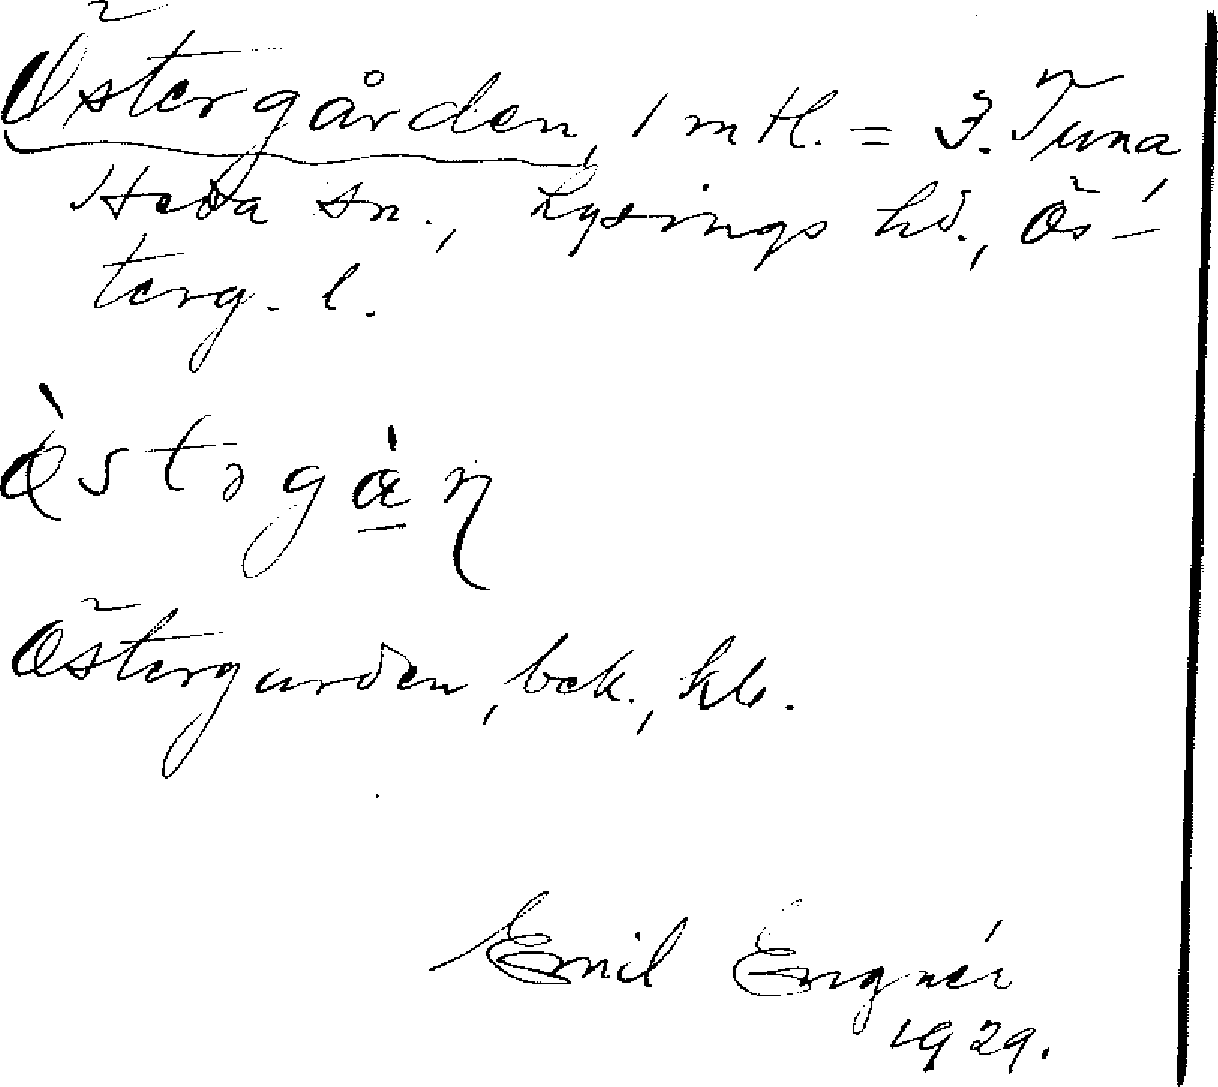 Östergården, 1 mtl. = 3. Tuna
Heda sn., Lysings hd., Ös-
terg. l.
Östergarden, bek., kb.
Emil Engnér
1929.